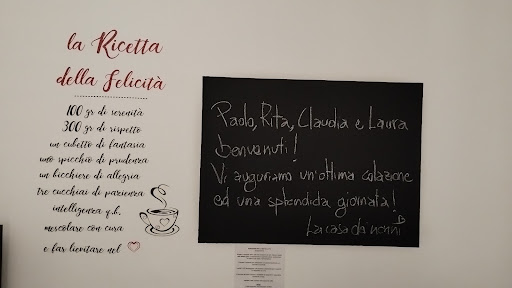 la Ricetta
della Felicità
100 gr di serenità
300 gr di rispetto
un cubetto di fantasia
uno spicchio di prudenza
un bicchiere di allegria
tre cucchiai di pazienza
intelligenza q.b.
mescolare con cura
e far lievitare nel
Paolo, Rita, Claudia e Laura
benvenuti!
Vi auguriamo un'ottima colazione
ed una splendida giornata!
La casa dei nonni